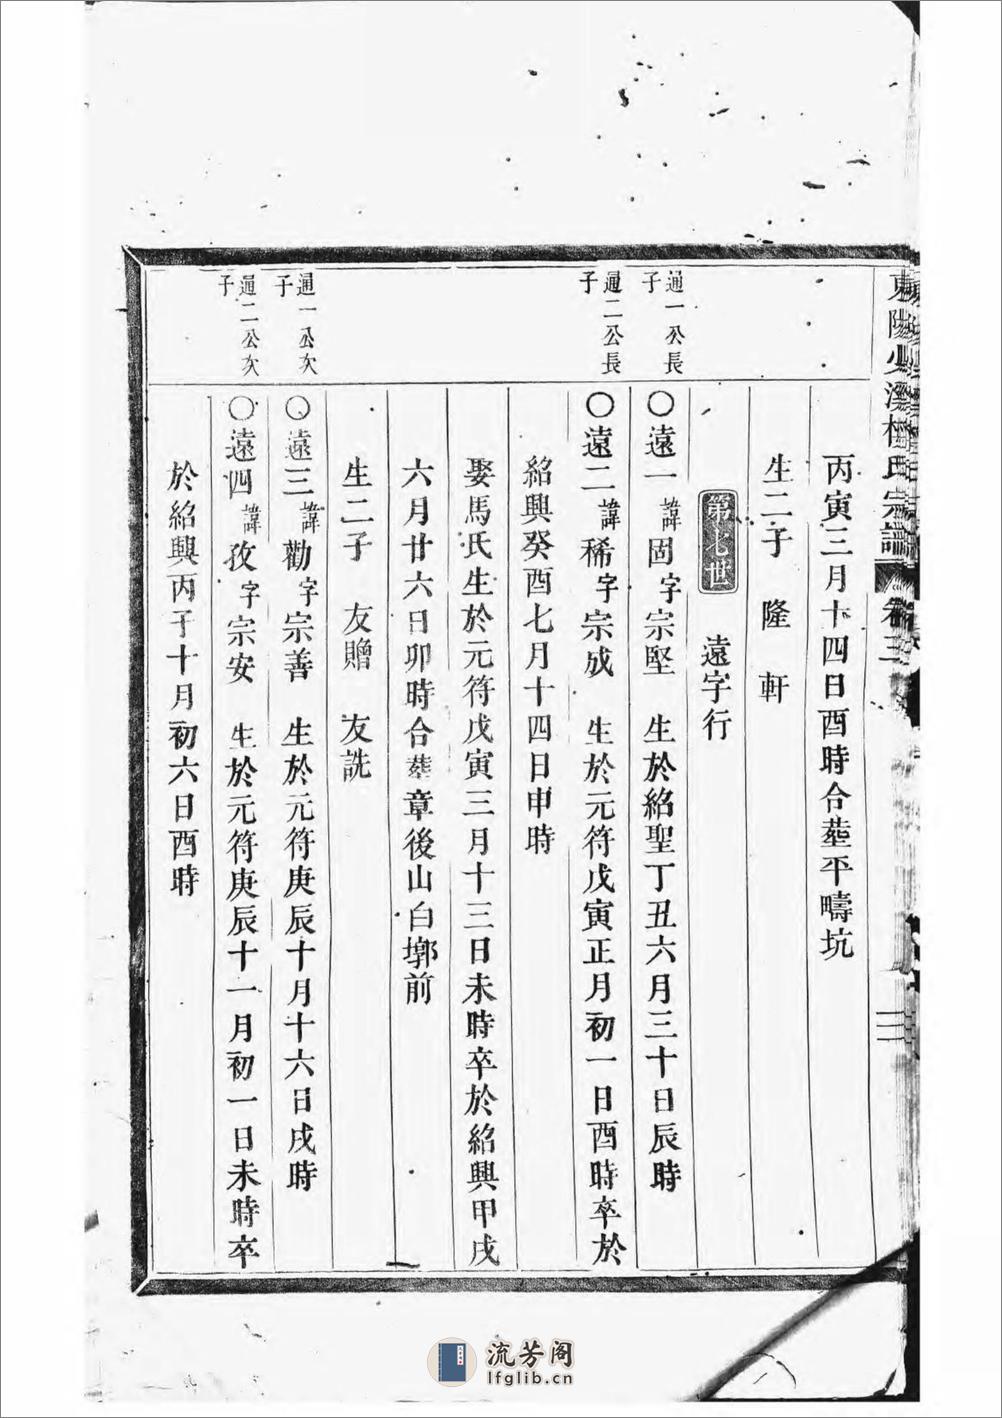 宗譜
卷三
丙寅三月十四日酉時合塟平疇坑
生二子 隆 軒
第七世 遠字行
通一公長子
○遠一 諱固字宗堅 生於紹聖丁丑六月三十日辰時
通二公長子
○遠二 諱稀字宗成 生於元符戊寅正月初一日酉時卒於
紹興癸酉七月十四日申時
娶馬氏生於元符戊寅三月十三日未時卒於紹興甲戌
六月廿六日卯時合塟章後山白墎前
生二子 友贈 友詵
通一公次子
○遠三 諱勸字宗善 生於元符庚辰十月十六日戌時
通二公次子
○遠四 諱孜字宗安 生於元符庚辰十一月初一日未時卒
於紹興丙子十月初六日酉時
流芳阁
lfglib.cn